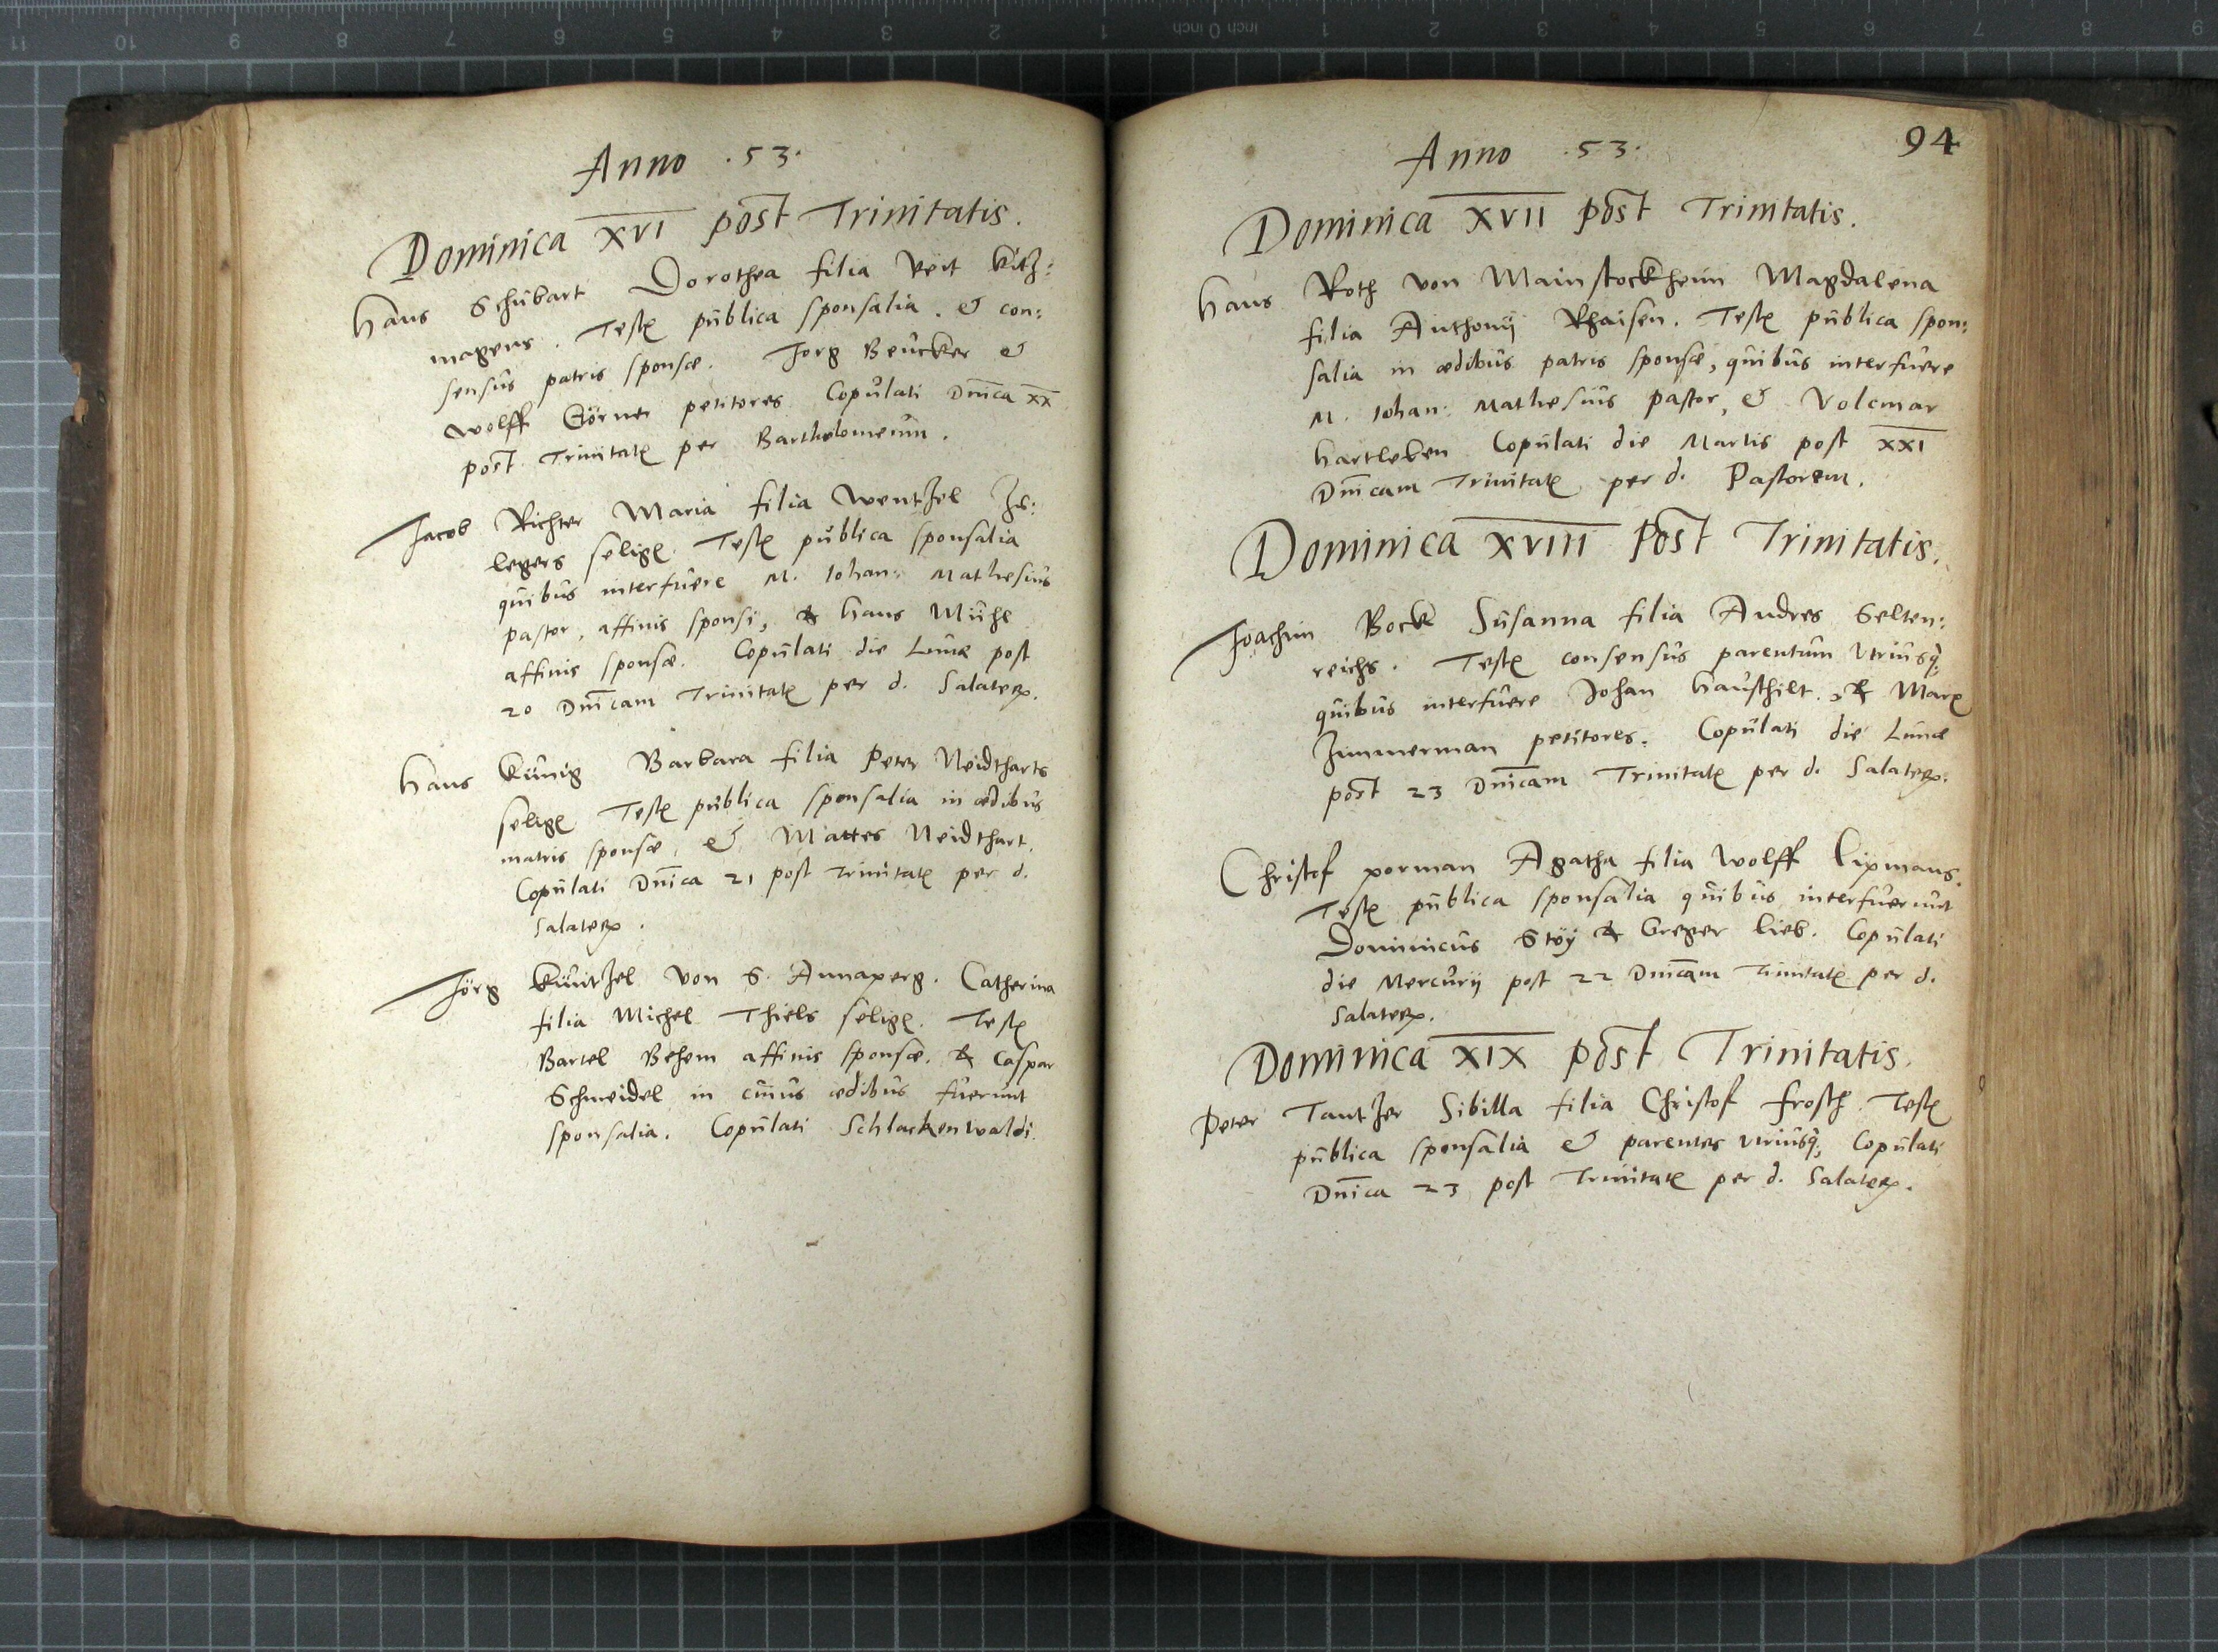 Anno .53.
Dominica XVI post Trinitatis.
Hans Schubart Dorothea filia Veit Kitz:
magens. Test publica sponsalia. & con:
sensus patris sponsæ. Jorg Beucker &
Wolff Körner petitores Copulati Dnica XX
post Trinitat per Bartholomeum.
Jacob Richter Maria filia Wentzel Zu:
legers selig Test publica sponsalia
quibus interfuere M. Iohan: Mathesius
pastor, affinis sponsi, & Hans Mühl
affinis sponsæ. Copulati die Lunæ post
20 Dnicam Trinitat per d. Salater.
Hans Künig Barbara filia Peter Neidtharts
selig Test publica sponsalia in ædibus
matris sponsæ, & Mattes Neidthart.
Copulati Dnica 21 post Trinitat per d.
Salater.
Jörg Küntzel von S. Annaperg. Catherina
filia Michel Thiels selig. Test
Bartel Behem affinis sponsæ. & Caspar
Schneidel in cuius ædibus fuerunt
sponsalia. Copulati Schlackenwaldi.
94
Anno .53.
Dominica XVII post Trinitatis.
Hans Roth von Mainstockheim Magdalena
filia Anthonij Rhaisen. Test publica spon:
salia in ædibus patris sponsæ, quibus interfuere
M. Iohan: Mathesius pastor, & Volcmar
Hartleben Copulati die Martis post XXI
Dnicam Trinitat per d. Pastorem.
Dominica XVIII Post Trinitatis.
Joachim Bock Susanna filia Andres Selten:
reichs. Test consensus parentum utriusq;
quibus interfuere Johan Hausthilt, & Marx
Zimmerman petitores. Copulati die Lunæ
post 23 Dnicam Trinitat per d. Salater.
Christof porman Agatha filia Wolff Lixmans.
Test publica sponsalia quibus interfuerunt
Dominicus Stöj & Greger Lieb. Copulati
die Mercurij post 22 Dnicam Trinitat per d.
Salater.
Dominica XIX post Trinitatis.
Peter Tantzer Sibilla filia Christof Frosch Test
publica sponsalia & parentes utriusq; Copulati
Dnica 23 post Trinitat per d. Salater.